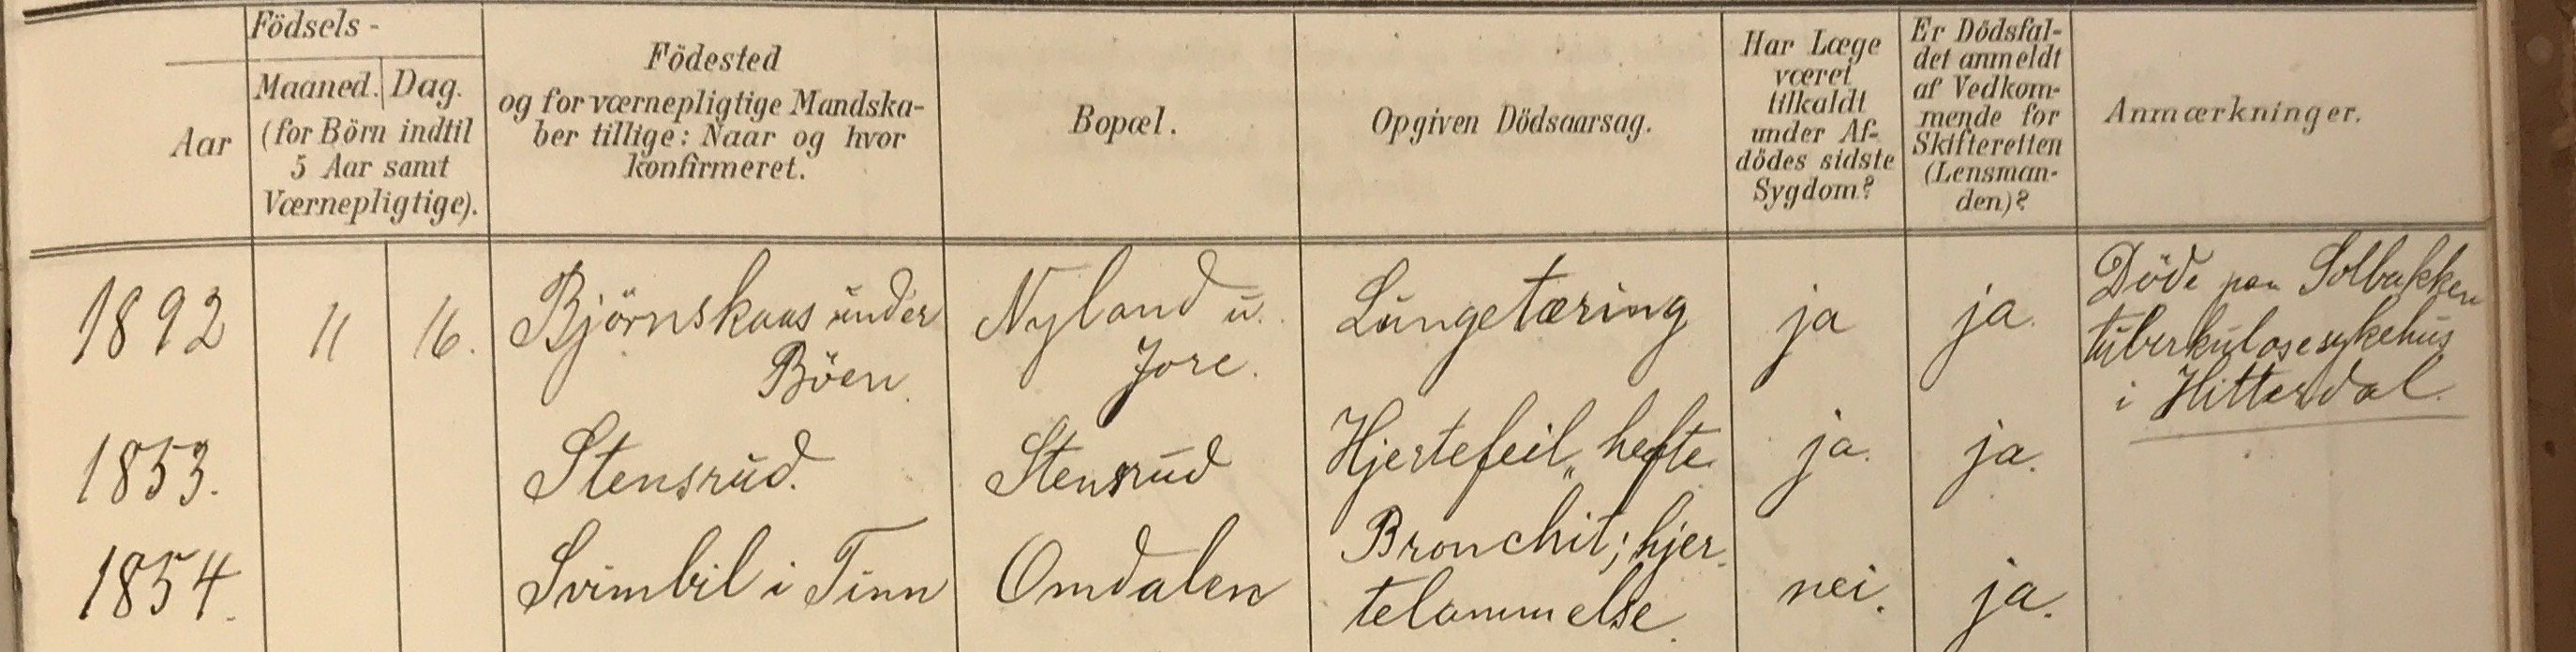 Födsels-
Aar
Maaned. Dag.
(for Börn indtil
5 Aar samt
Værnepligtige).
Födested
og for værnepligtige Mandska-
ber tillige: Naar og hvor
konfirmeret.
Bopæl.
Opgiven Dödsaarsag.
Har Læge
været
tilkaldt
under Af-
dödes sidste
Sygdom?
Er Dödsfal-
det anmeldt
af Vedkom-
mende for
Skifteretten
(Lensman-
den)?
Anmærkninger.
1892 11 16. Björnskaas under
Böen.
Nyland u.
Jore.
Lungetæring
ja
ja.
Döde paa Solbakken
tuberkulosesykehus
i Hitterdal.
1853. Stensrud. Stensrud Hjertefeil, hefte ja. ja.
1854. Svimbil i Tinn Omdalen
Bronchit; hjer-
telammelse.
nei.
ja.